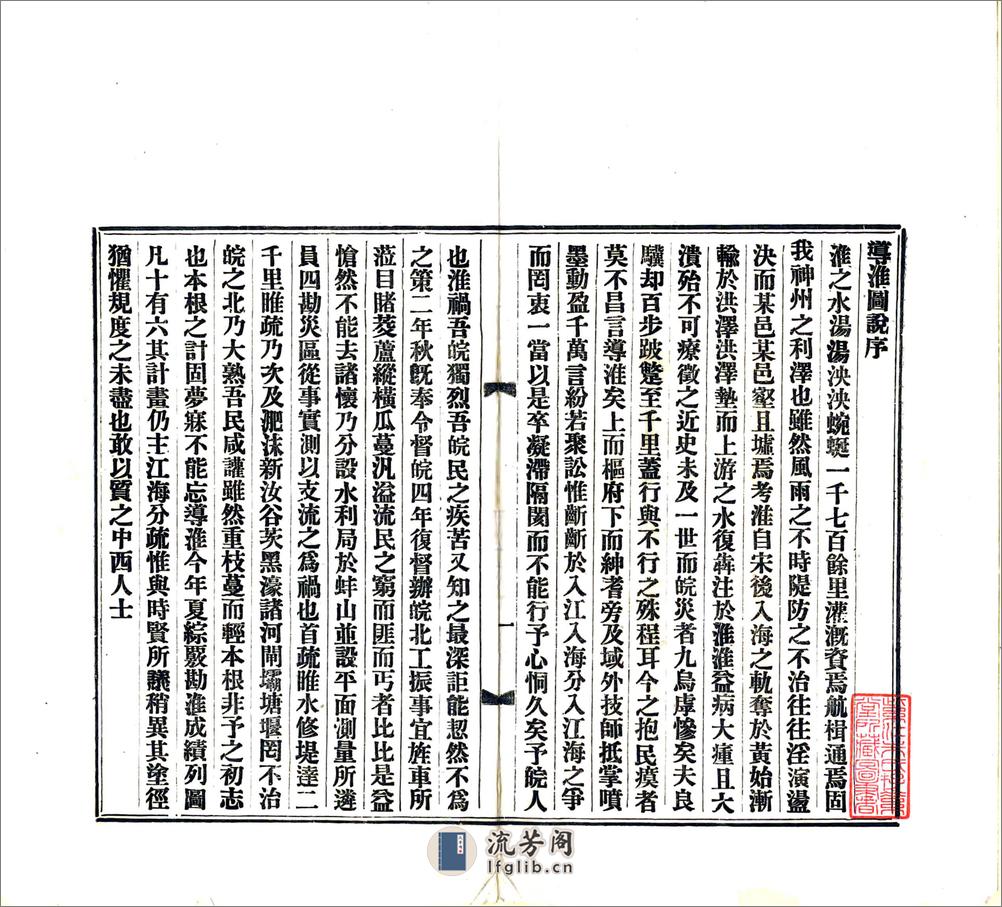 導淮圖說序
淮之水湯湯泱泱蜿蜒一千七百餘里灌漑資焉航楫通焉固
我神州之利澤也雖然風雨之不時隄防之不治往往淫濵盪
決而某邑某邑壑且墟焉考淮自宋後入海之軌奪於黃始漸
輸於洪澤洪澤墊而上游之水復犇注於淮淮益病大瘇且大
潰殆不可療徵之近史未及一世而皖災者九烏虖慘矣夫良
驥却百步跛鼈至千里蓋行與不行之殊程耳今之抱民瘼者
莫不昌言導淮矣上而樞府下而紳耆旁及域外技師抵掌噴
墨動盈千萬言紛若聚訟惟斷斷於入江入海分入江海之爭
而罔衷一當以是卒凝滯隔閡而不能行予心恫久矣予皖人
一
也淮禍吾皖獨烈吾皖民之疾苦又知之最深詎能恝然不爲
之策二年秋旣奉令督皖四年復督辦皖北工振事宜旌車所
蒞目睹菱蘆縱橫瓜蔓汎溢流民之窮而匪而丐者比比是益
愴然不能去諸懷乃分設水利局於蚌山並設平面測量所遴
員四勘災區從事實測以支流之爲禍也首疏睢水修堤達二
千里睢疏乃次及淝沫新汝谷茨黑濠諸河閘壩塘堰罔不治
皖之北乃大熟吾民咸讙雖然重枝蔓而輕本根非予之初志
也本根之計固夢寐不能忘導淮今年夏綜覈勘淮成績列圖
凡十有六其計畫仍主江海分疏惟與時賢所議稍異其塗徑
猶懼規度之未盡也敢以質之中西人士
堂所藏圖書
流芳阁
lfglib.cn